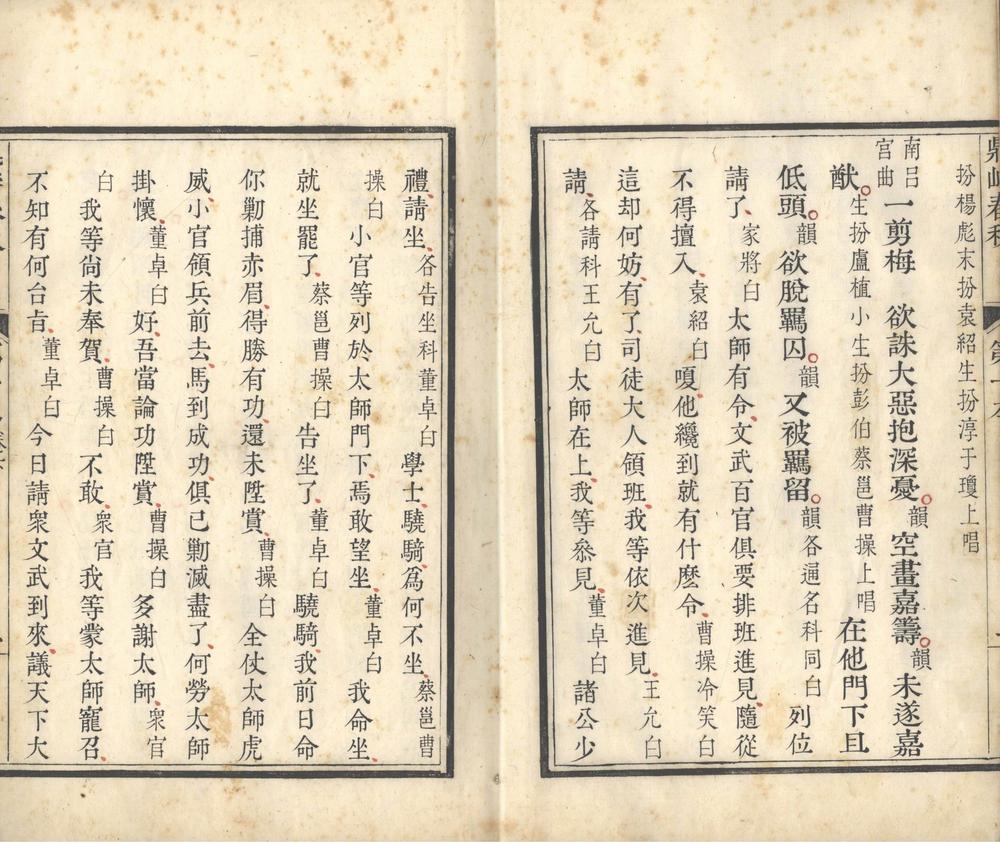 扮楊彪末扮袁紹生扮淳于瓊上唱
南呂宮曲一剪梅 欲誅大惡抱深憂韻空畫嘉籌韻未遂嘉
猷生扮盧植小生扮彭伯蔡邕曹操上唱在他門下且
低頭韻欲脫羈囚韻又被羈留韻各通名科同白列位
請了家將白太師有令文武百官俱要排班進見隨從
不得擅入袁紹白嗄他纔到就有什麽令曹操冷笑白
這却何妨有了司徒大人領班我等依次進見王允白
請各請科王允白太師在上我等叅見董卓白諸公少
禮請坐各告坐科董卓白學士驍騎爲何不坐蔡邕曹
操白小官等列於太師門下焉敢望坐董卓白我命坐
就坐罷了蔡邕曹操白告坐了董卓白驍騎我前日命
你勦捕赤眉得勝有功還未陞賞曹操白全仗太師虎
威小官領兵前去馬到成功俱已勦滅盡了何勞太師
掛懷董卓白好吾當論功陞賞曹操白多謝太師衆官
白我等尚未奉賀曹操白不敢衆官我等蒙太師寵召
不知有何台旨董卓白今日請衆文武到來議天下大